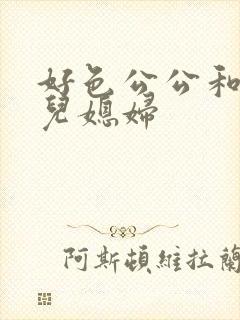 好色公公和
兒媳婦
阿斯頓維拉蘭